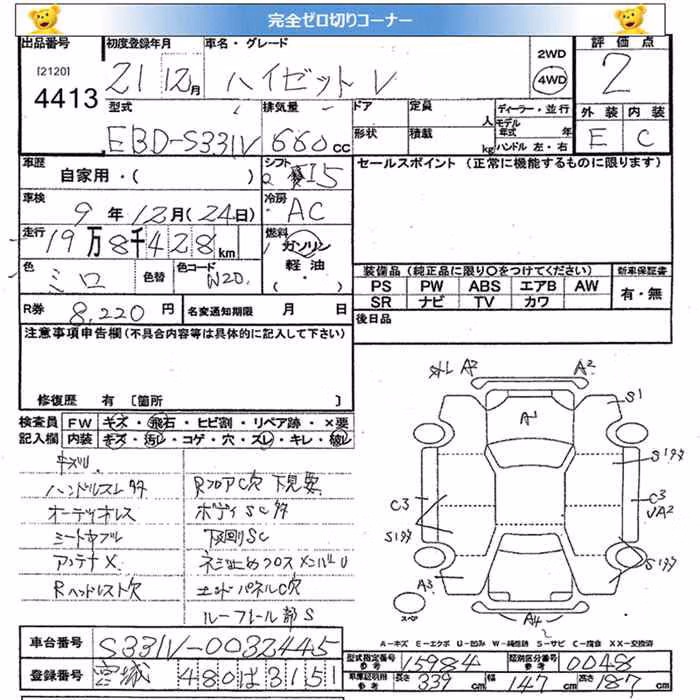 完全ゼロ切りコーナー
出品番号 初度登録年月 車名・グレード 2WD 評価点
[2120] 4413 21 12月 ハイゼット V 4WD 2
型式 排気量 ドア 定員 人 ディーラー・並行 外装 内装
EBD-S331V 660cc 形状 積載 kg モデル年式 年 ハンドル 左・右 E C
車歴 自家用・( ) シフト I5 セールスポイント (正常に機能するものに限ります)
車検 9年12月(24日) 冷房 AC
走行 19万8千428km 燃料 ガソリン 軽油・( )
色 シロ 色替 色コード W20
装備品 (純正品に限り○をつけてください) 新車保証書
PS PW ABS エアB AW 有・無
SR ナビ TV カワ
R券 8,220円 名変通知期限 月 日 後日品
注意事項申告欄 (不具合内容等は具体的に記入して下さい)
修復歴 有 [箇所 ]
検査員 FW キズ・飛石・ヒビ割・リペア跡・×要
記入欄 内装 キズ・汚レ・コゲ・穴・スレ・キレ・破レ
キズU
ハンドルスレ多 RフロアC穴 下見要
オーディオレス ボディSC多
シートヤブレ 下回りSC
アンテナX ネジ止めクロスメンバーU
Rヘッドレスト欠 エンドパネルC穴
ルーフレール部S
外レ A2 A2
S1
A1
S1多
C3 C3
UA2
S1多
S1多
A3
スペア
A4
A-キズ E-エクボ U-凹み W-補修跡 S-サビ C-腐食 XX-交換済
車台番号 S331V-0032445
型式指定番号 参考 15984 類別区分番号 参考 0048
登録番号 宮城 480 は 3151
車庫証明用 参考 長さ 339cm 幅 147cm 高さ 187cm